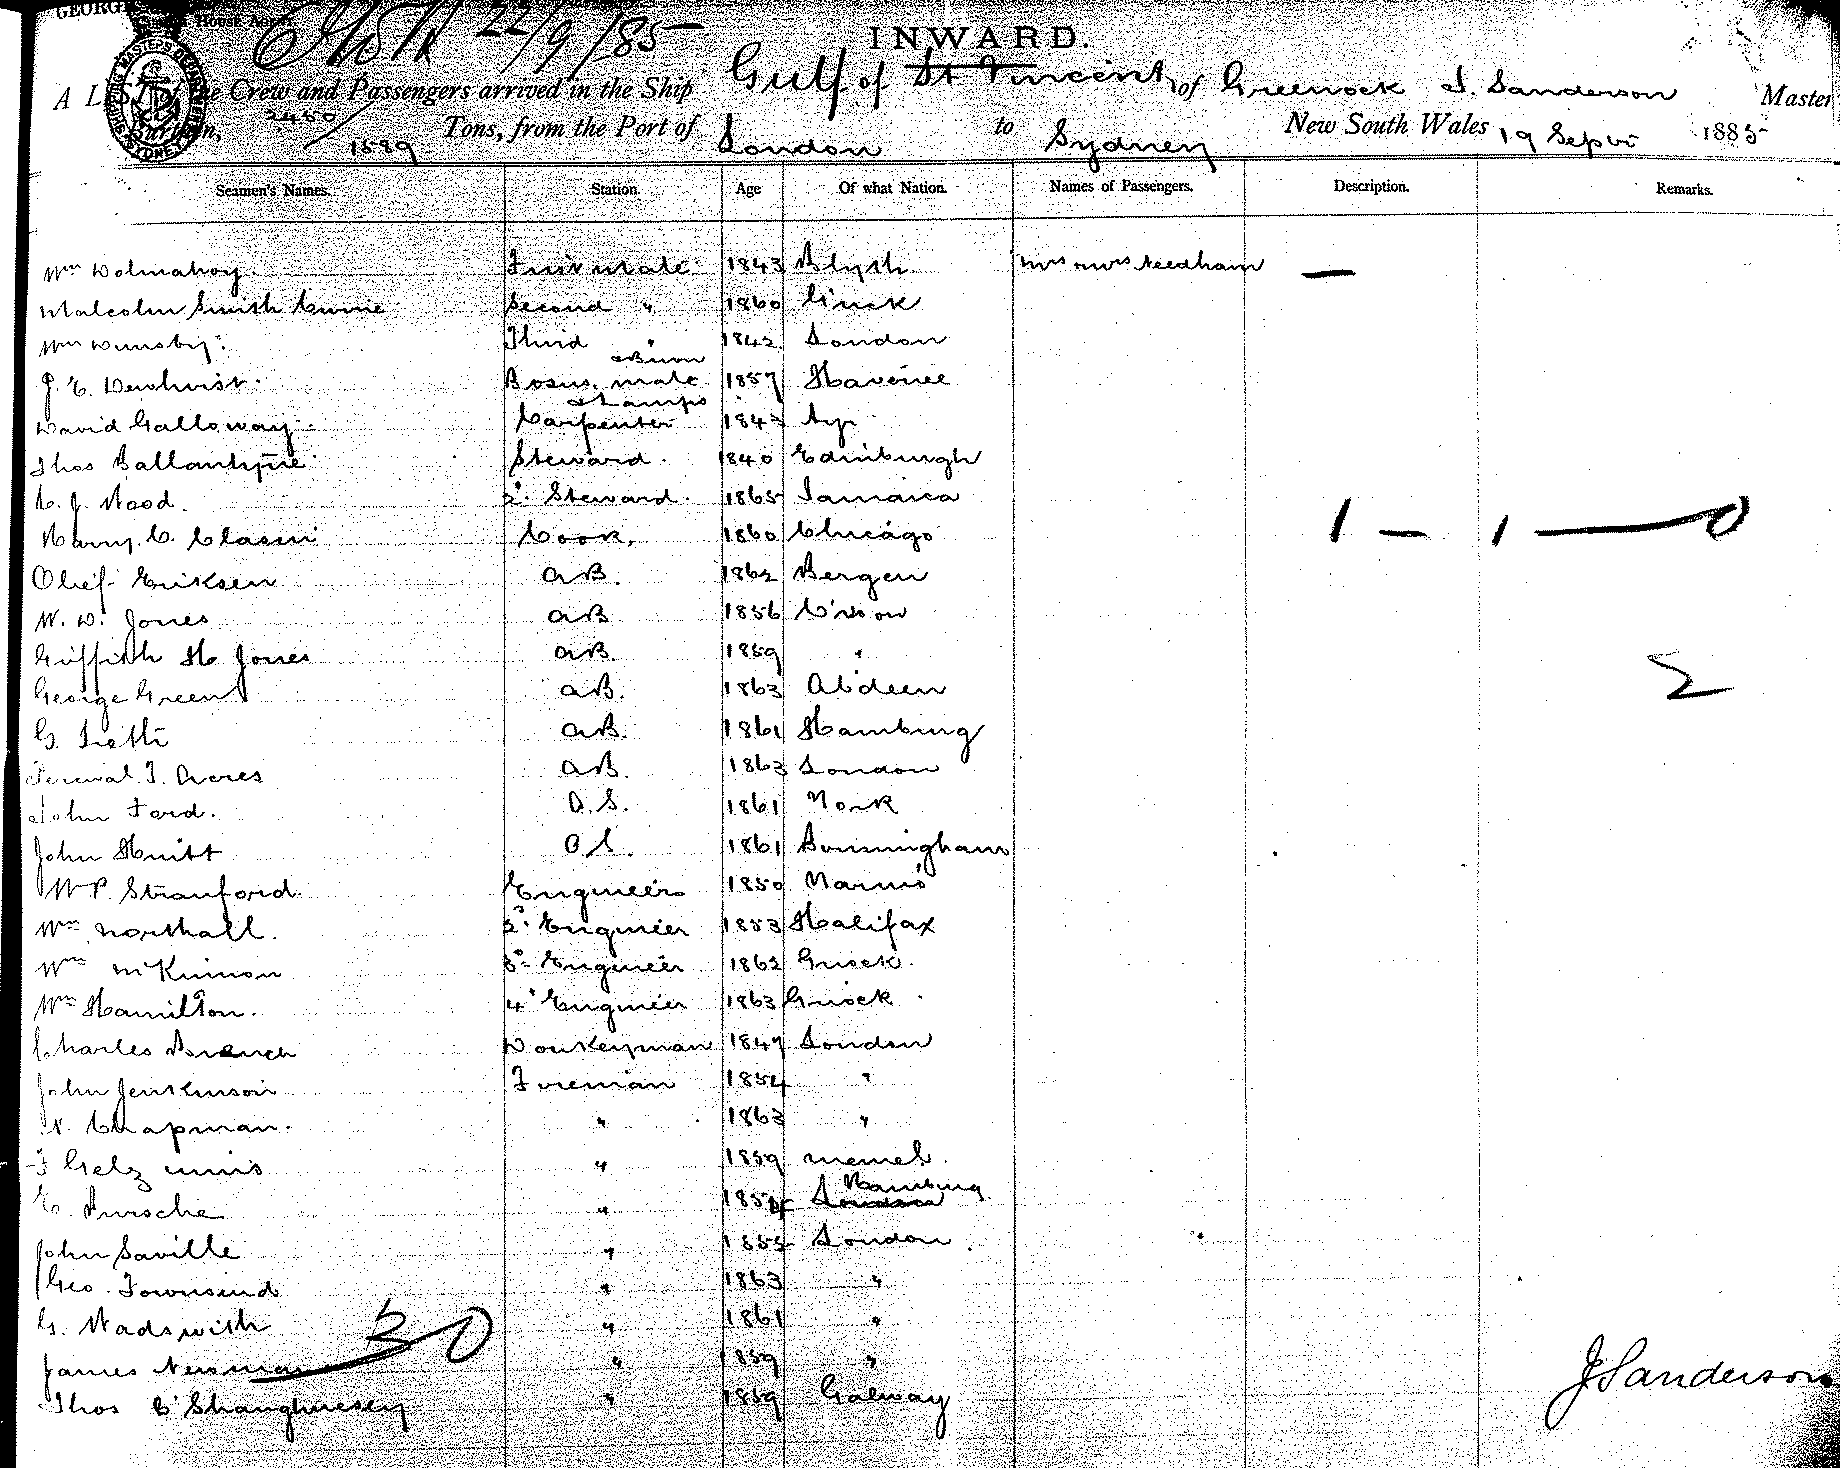 GEORGE
House
22/9/85
INWARD.
A LIST of the Crew and Passengers arrived in the Ship Gulf of St Vincent, of Greenock J. Sanderson Master
Tons, from the Port of London to Sydney New South Wales 19 Sept 1885
Seamen's Names. Station. Age Of what Nation. Names of Passengers. Description. Remarks.
Wm Dolmahoy. First mate 1843 Blyth Mrs Needham —
Malcolm Smith Currie Second " 1860 Ginck
Wm Third " 1842 London
J. E. Dewhirst. Bosns. mate 1857
David Galloway. Carpenter 1843 Ayr
Lamps
Thos Ballantyne Steward. 1840 Edinburgh
C. J. Wood. 2d. Steward. 1865 Jamaica
Harry. C. Cook. 1860 Chicago 1 — 1 — 0
Olief Eriksen A.B. 1862 Bergen
W. D. Jones A.B. 1856
Griffith H Jones A.B. 1859 "
George Green A.B. 1863 Abdeen 2
G. A.B. 1861 Hamburg
Percival T. Acres A.B. 1863 London
John Ford. O.S. 1861 York
John Huitt O.S. 1861 Birmingham
W P. Stranford Engineer 1850
Wm Northall. 2d. Engineer 1853 Halifax
Wm McKinnon 3d. Engineer 1862 Gnock.
Wm Hamilton. 4d Engineer 1863 Gnock
Charles Donkeyman 1847 London
John Jenkinson Fireman 1854 "
Chapman. " 1863 "
" 1859 Memel.
Hamburg
E. " London
John Saville " London
Geo. Townsend " 1863 "
G. Wadswith " 1861 "
30
James Newman " 1859 "
Thos O'Shanghnesey " 1859 Galway
J Sanderson